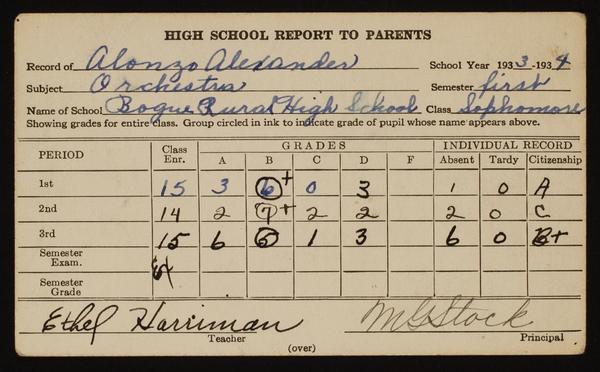 HIGH SCHOOL REPORT TO PARENTS
Record of Alonzo Alexander School Year 1933-1934
Subject Orchestra Semester first
Name of School Bogue Rural High School Class Sophomore
Showing grades for entire class. Group circled in ink to indicate grade of pupil whose name appears above.
PERIOD Class Enr. GRADES INDIVIDUAL RECORD
A B C D F Absent Tardy Citizenship
1st 15 3 6+ 0 3 1 0 A
2nd 14 2 7+ 2 2 2 0 C
3rd 15 6 5 1 3 6 0 B+
Semester Exam.
Semester Grade
Ethel Harriman M G Stock
Teacher Principal
(over)